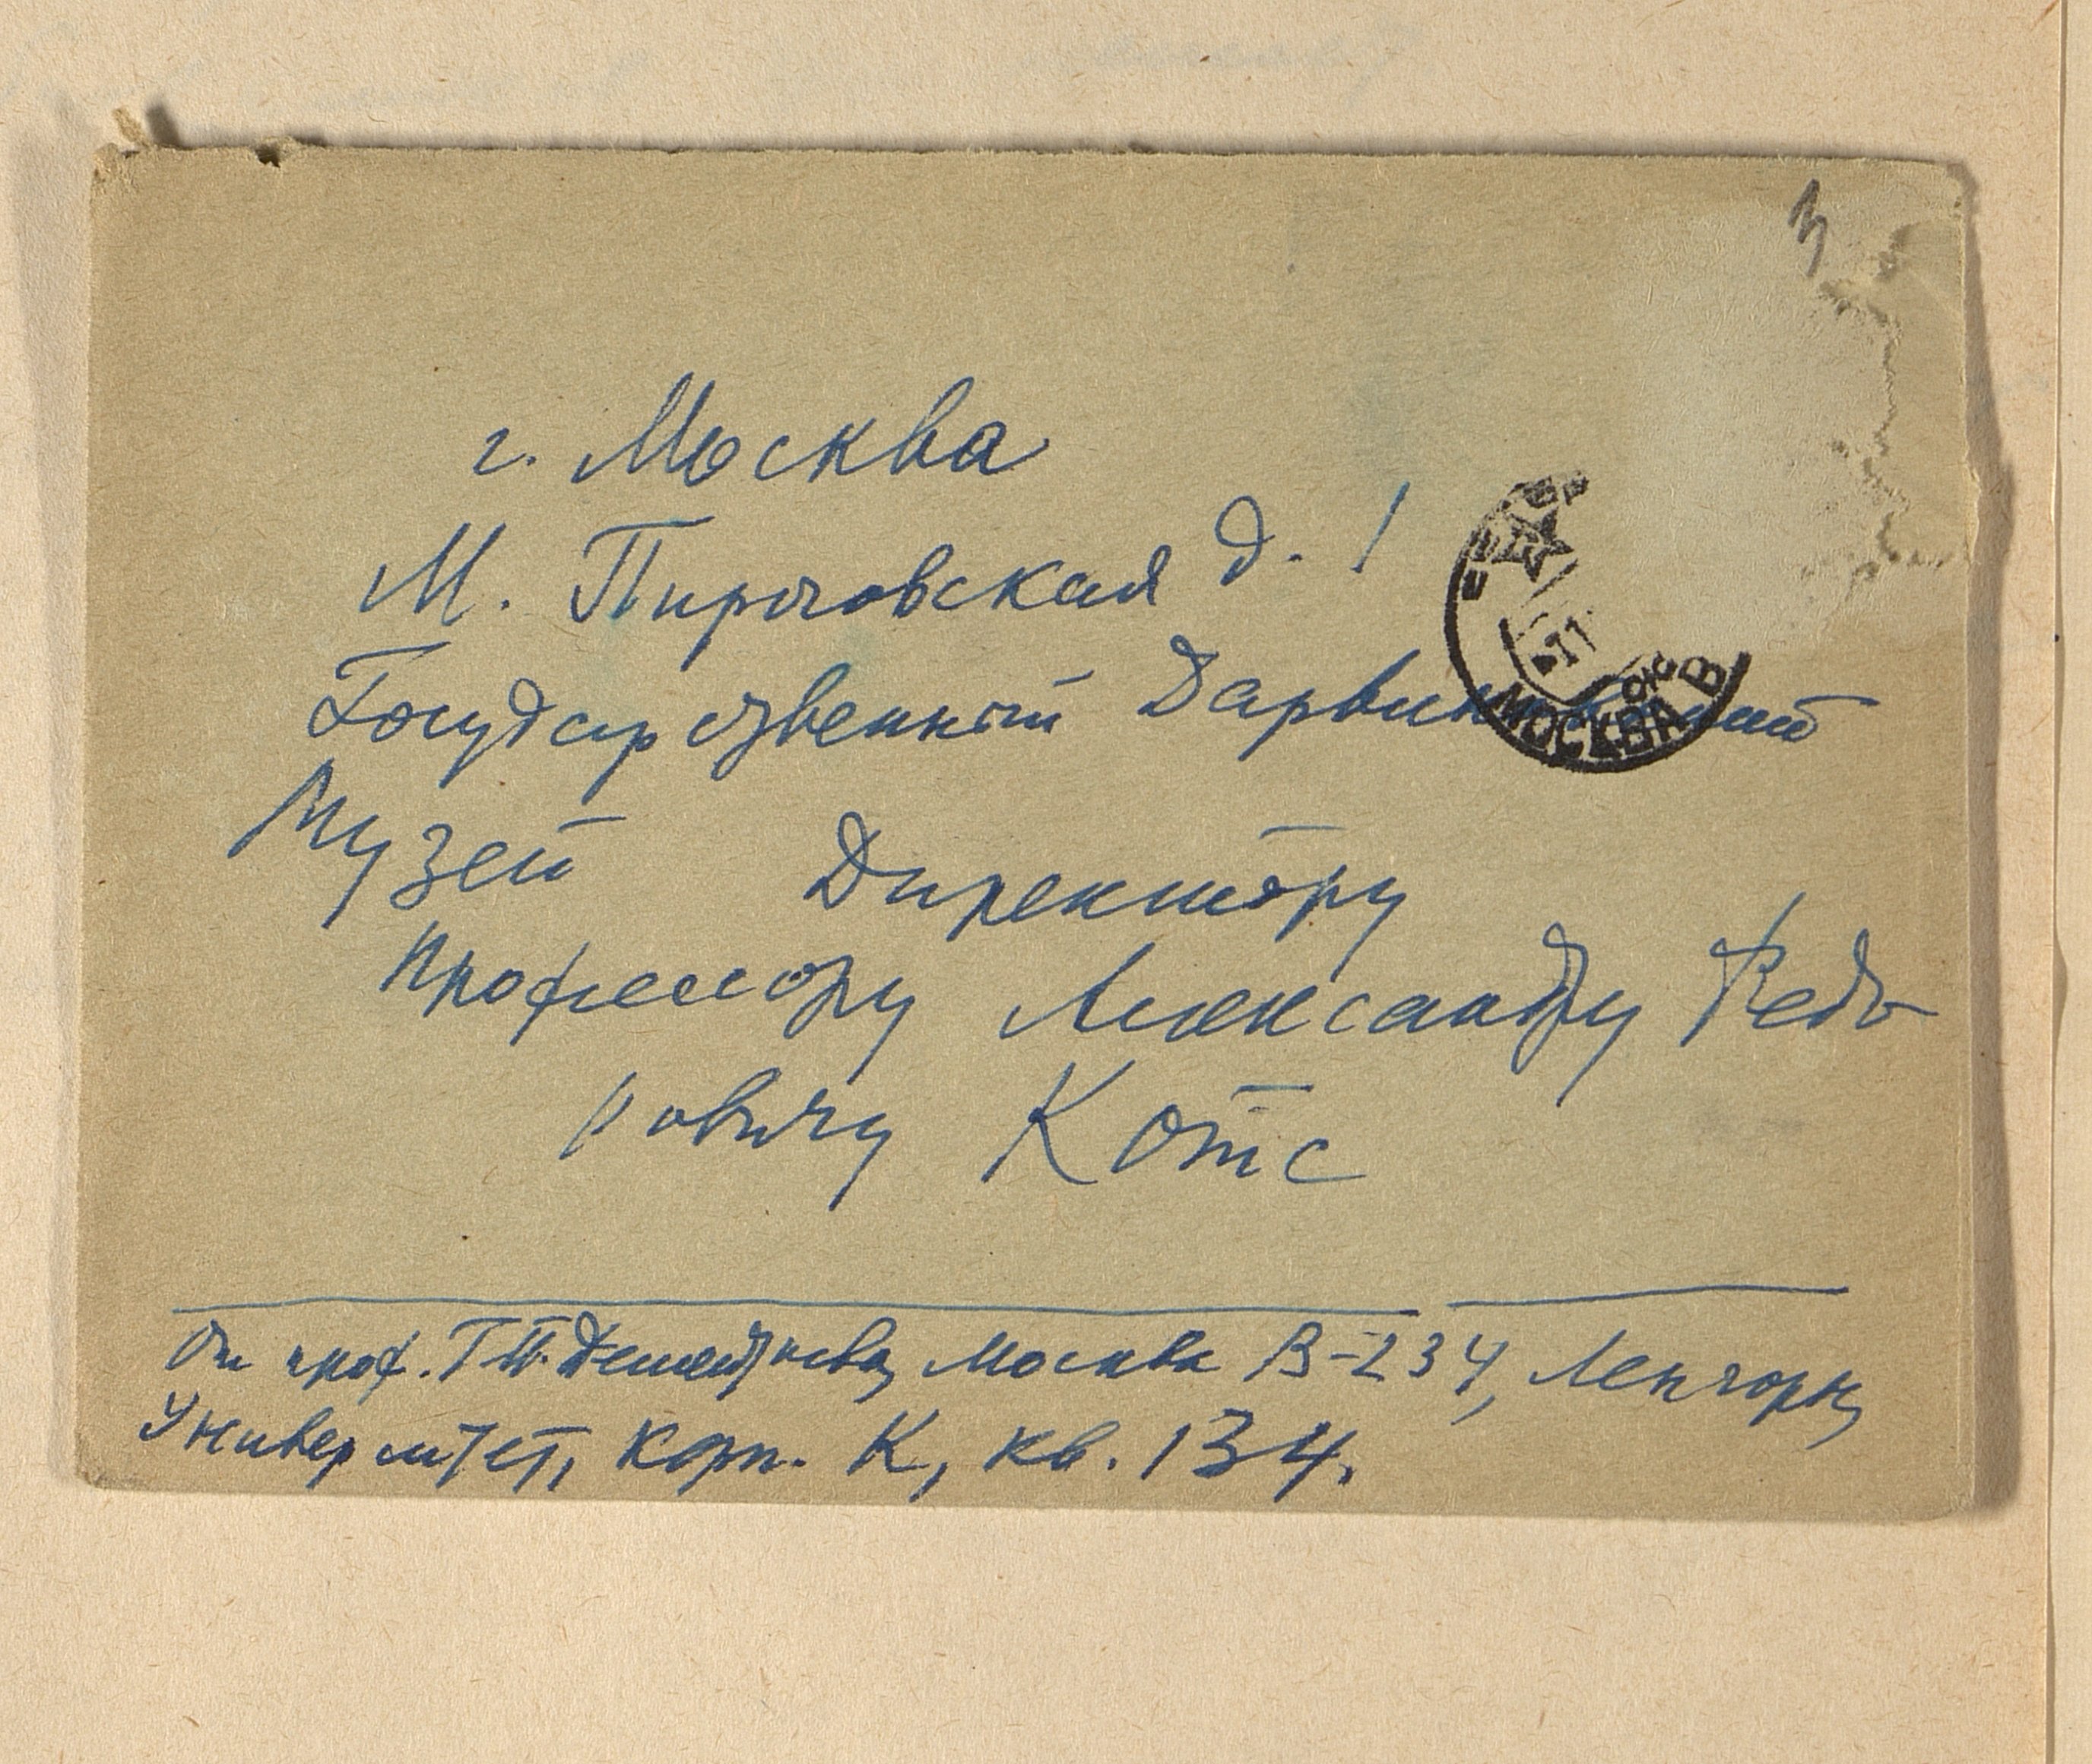 3
г. Москва
М. Пироговская д. 1
Государственный Дарвиновский
Музей Директору
Профессору Александру Федо-
ровичу Котс
МОСКВА В
От проф. Г.П. Дементьева, Москва В-234, Ленгоры,
Университет, корп. К, кв. 134.